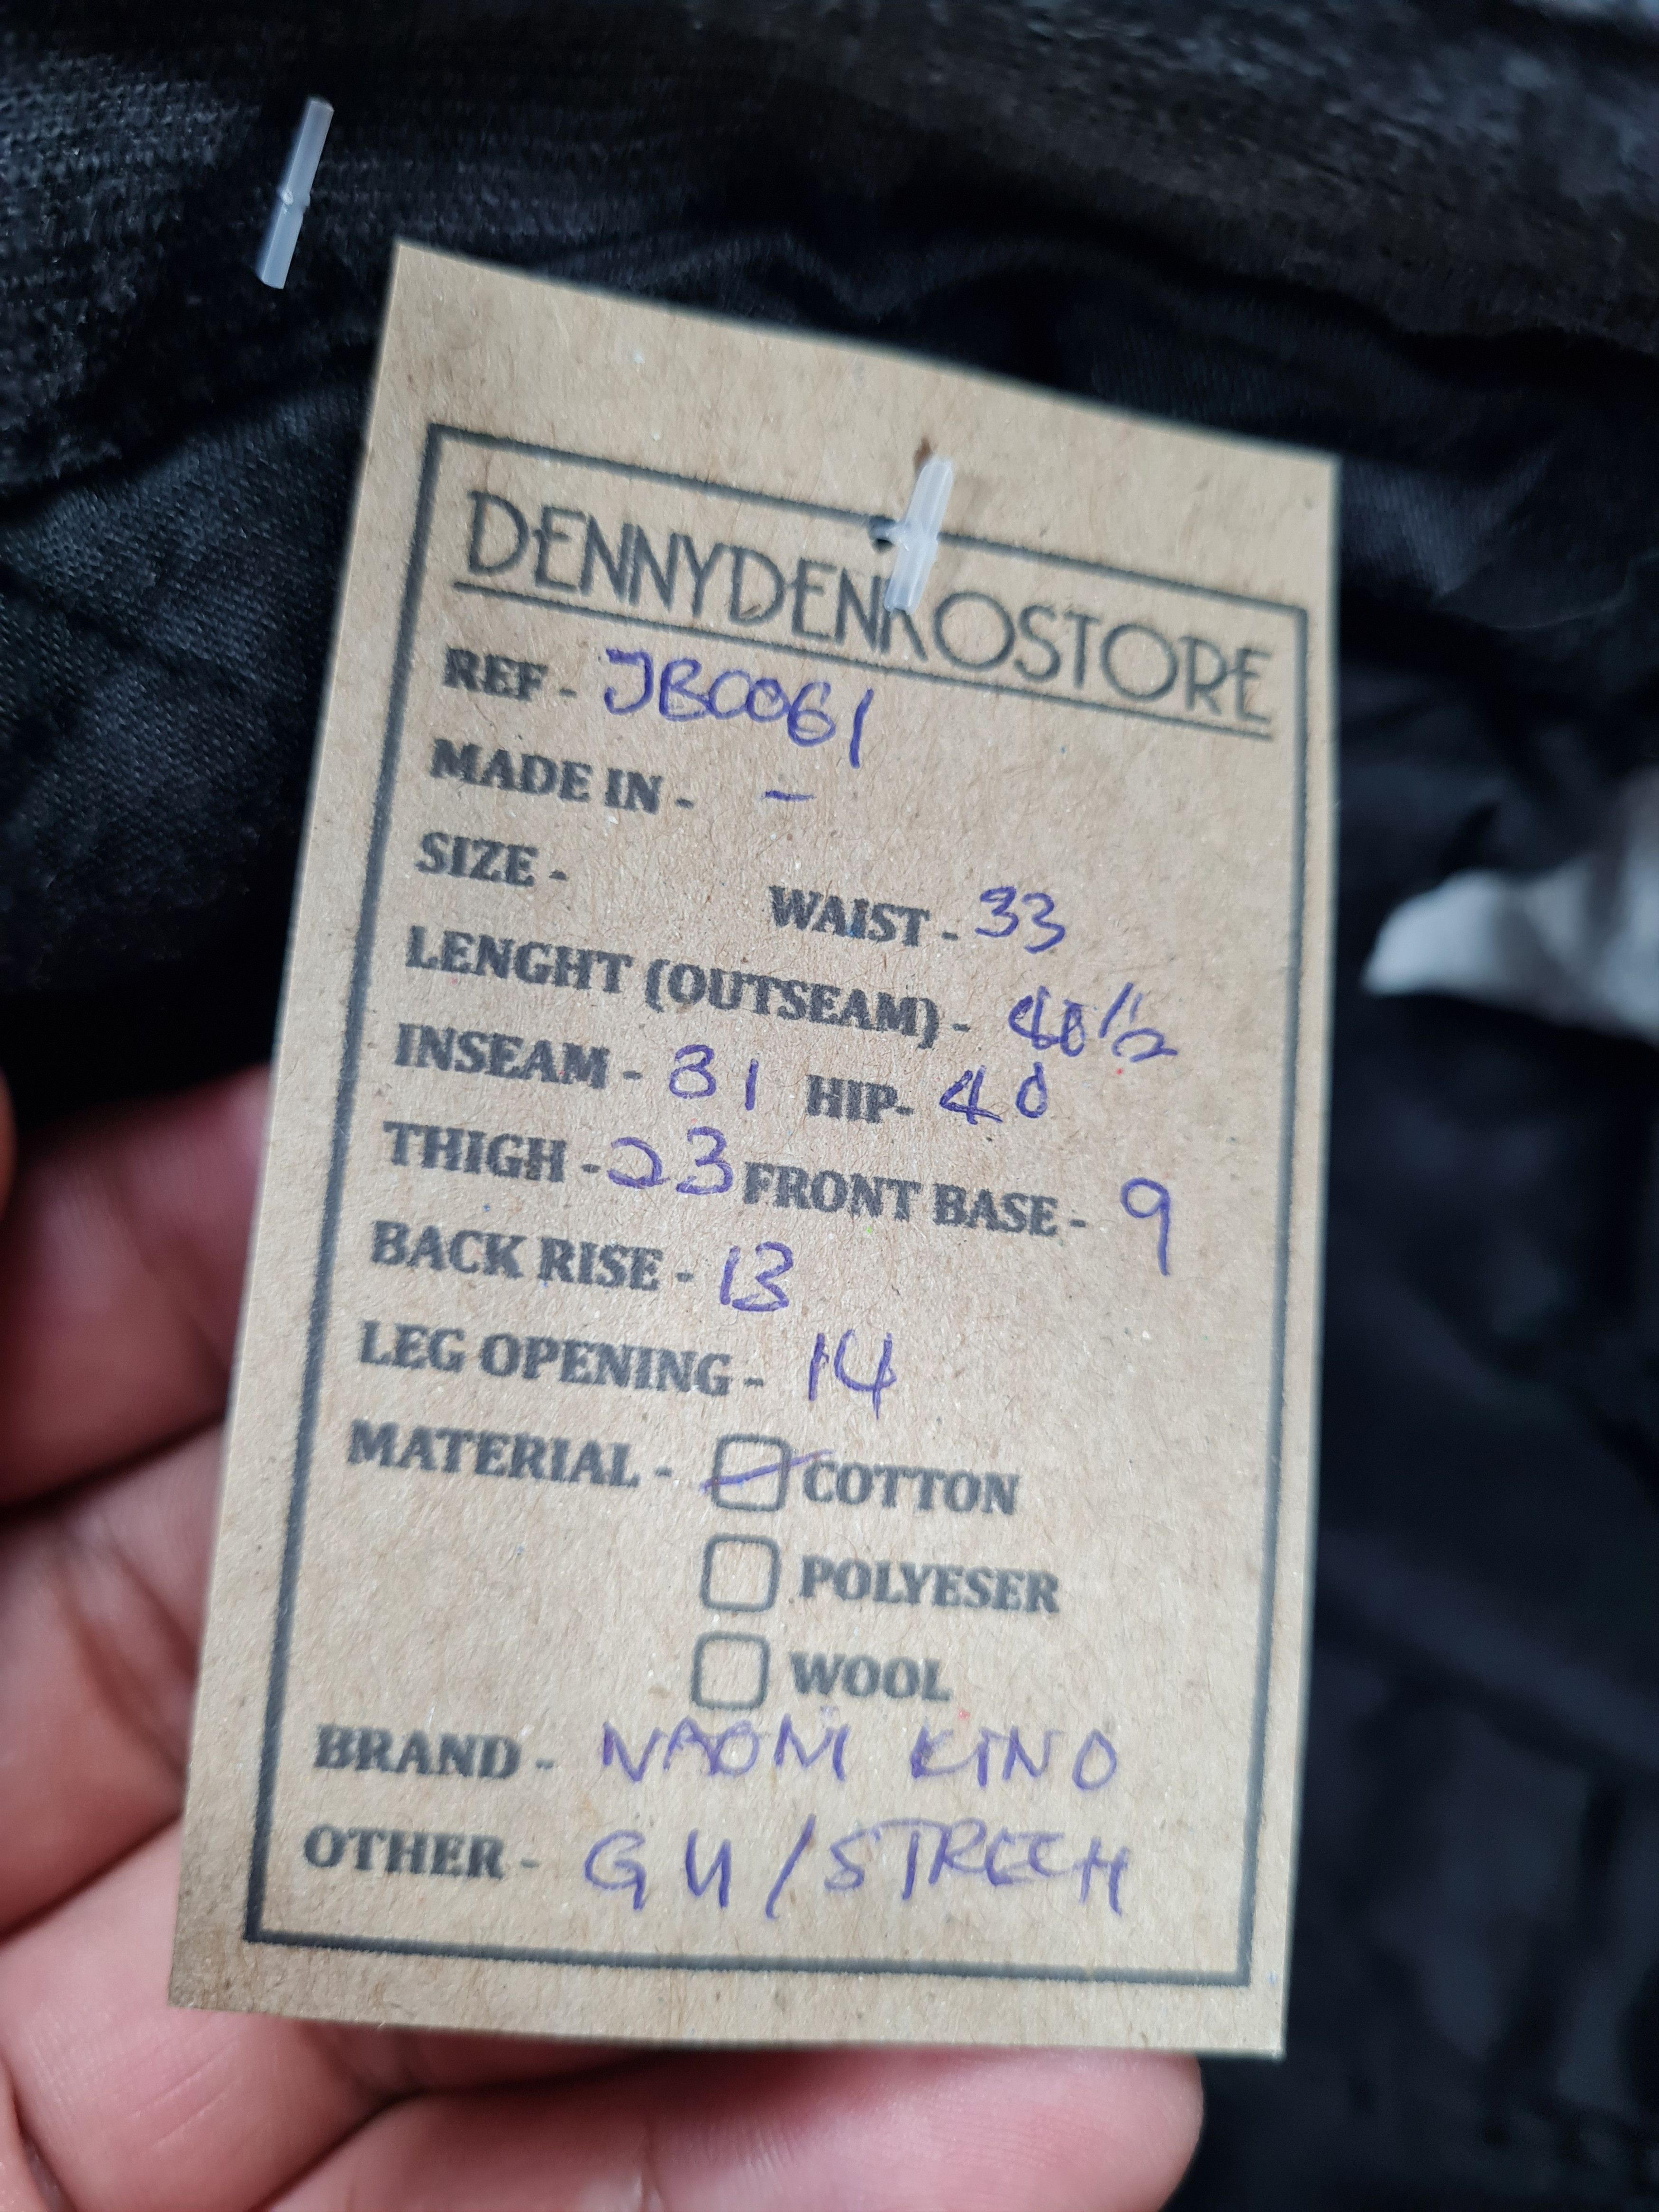 DENNYDENKOSTORE
REF - JB0061
MADE IN - -
SIZE -
WAIST - 33
LENGHT (OUTSEAM) - 40 1/2
INSEAM - 31 HIP- 40
THIGH - 23 FRONT BASE - 9
BACK RISE - 13
LEG OPENING - 14
MATERIAL - COTTON
POLYESER
WOOL
BRAND - NAOMI KINO
OTHER - G U / STRECH